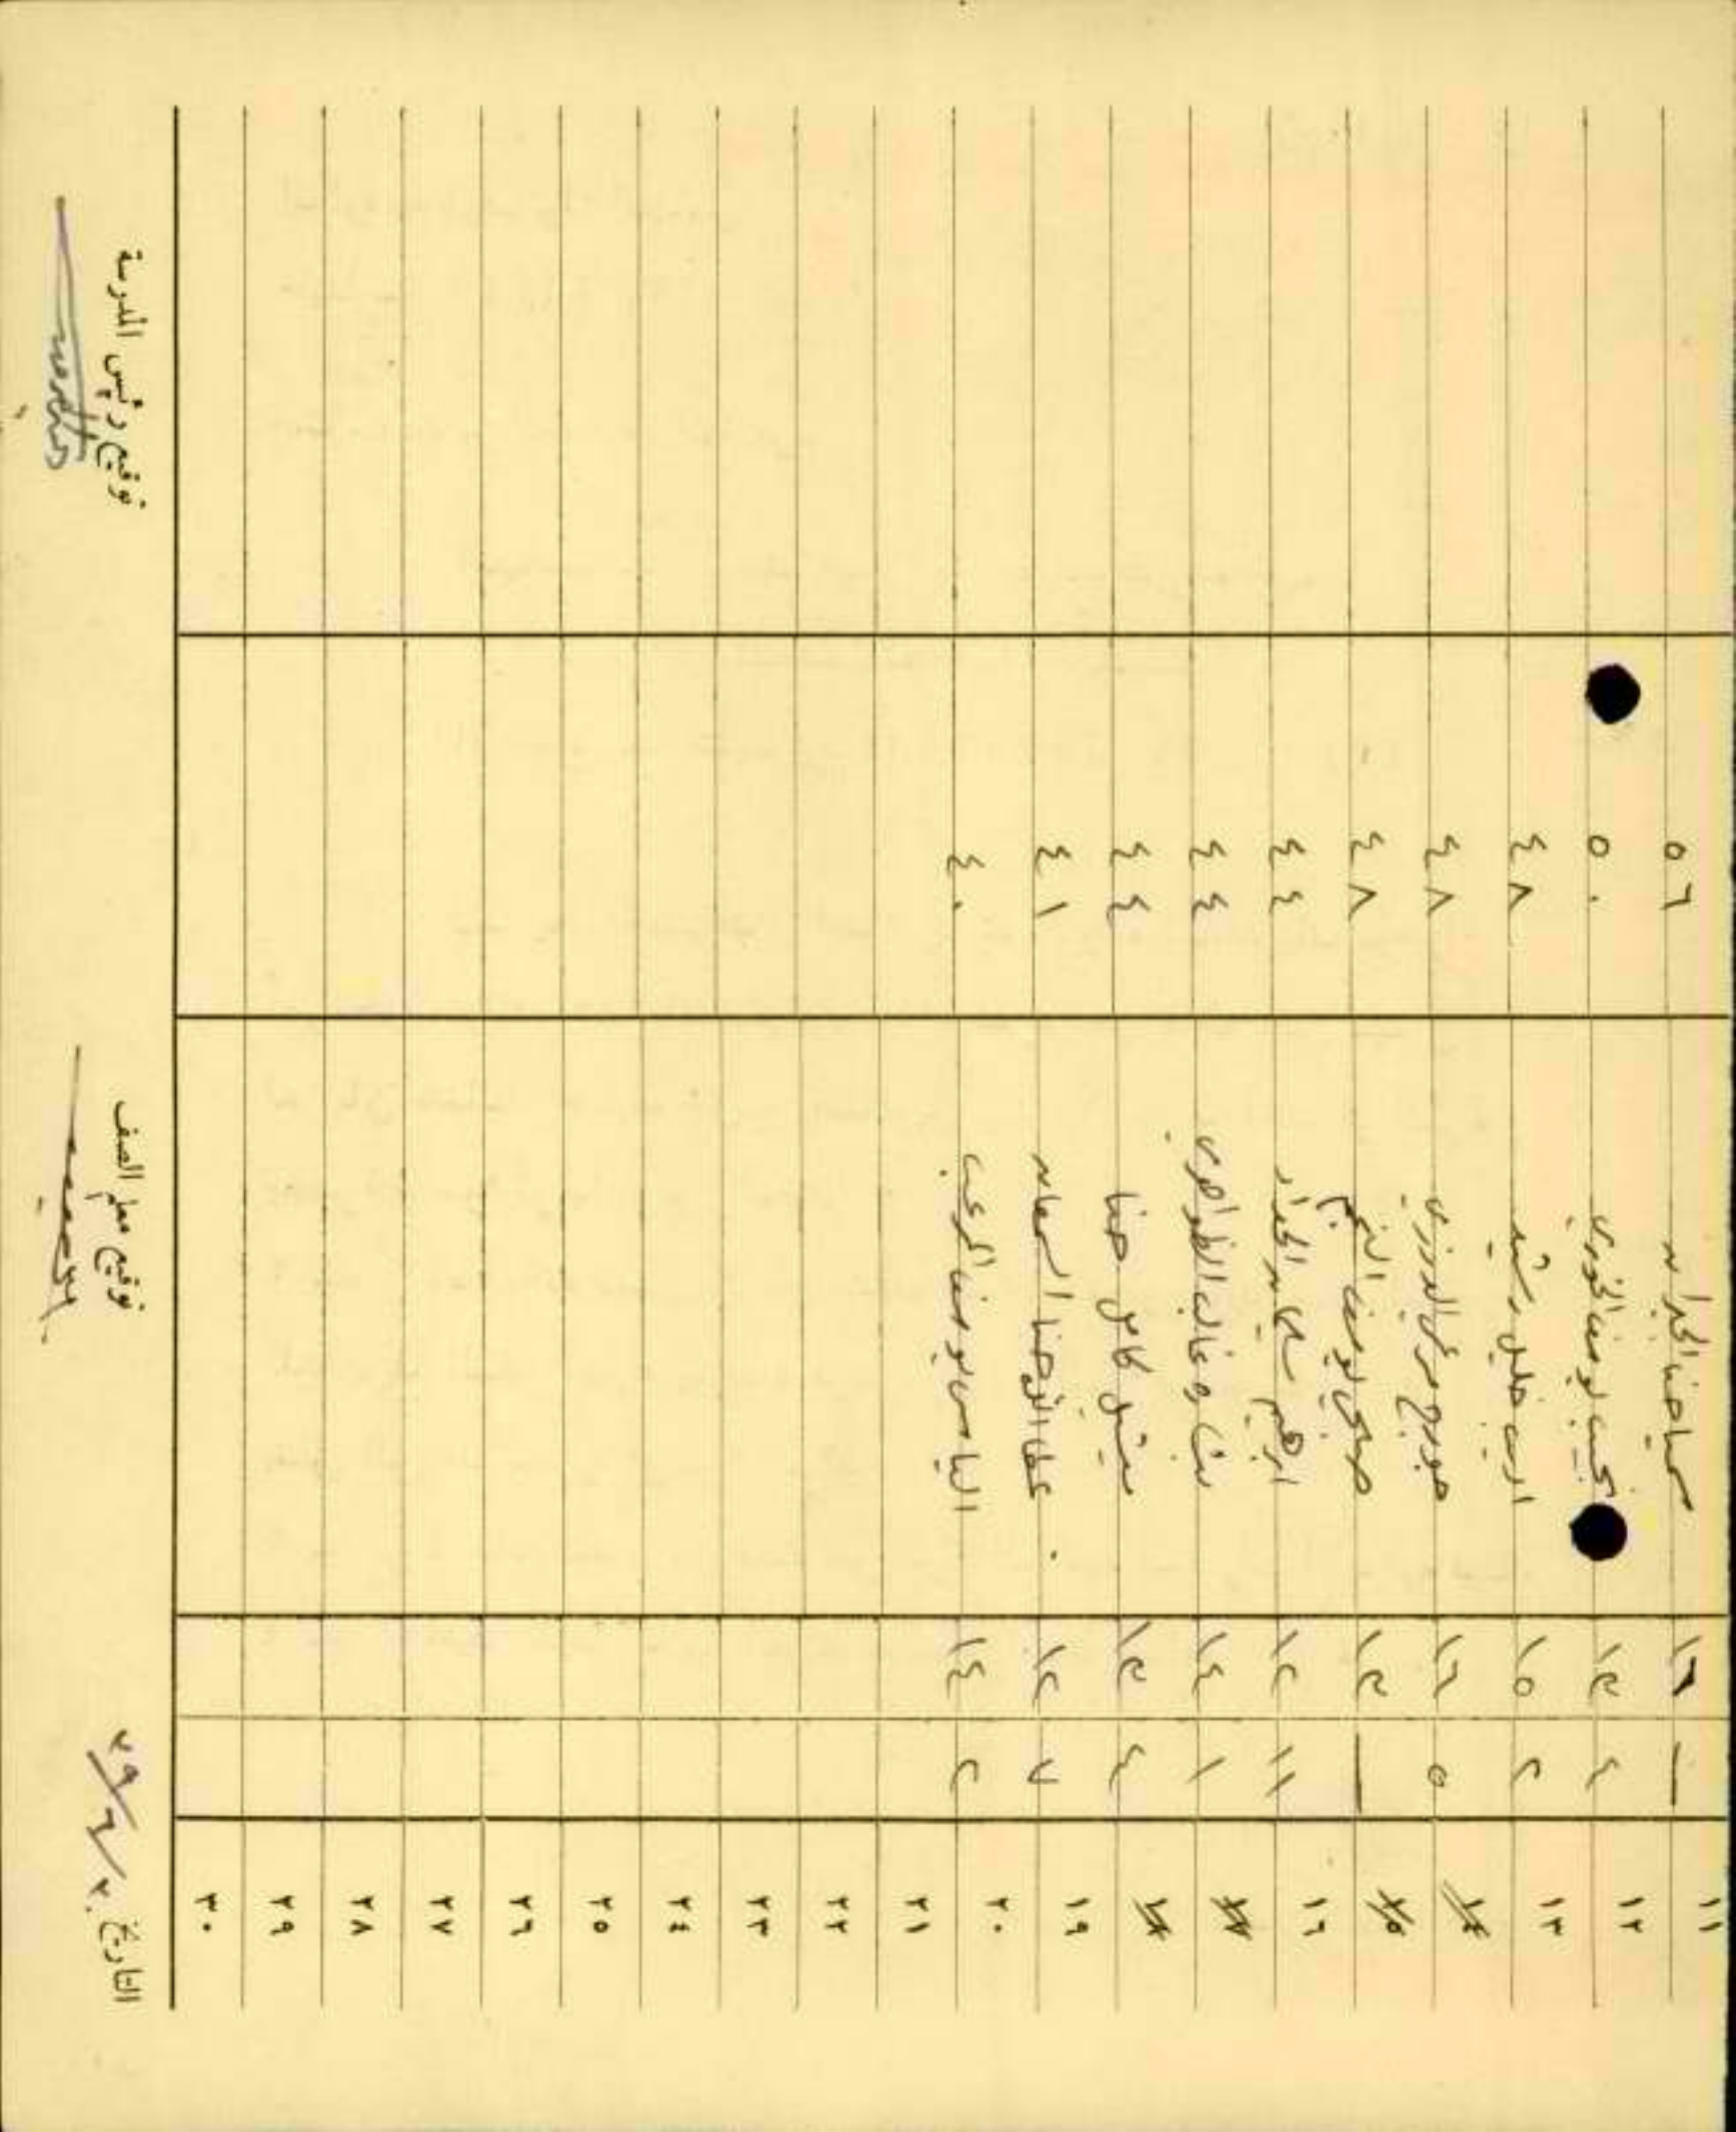 ١١ — ١٦ حنا الجبران ٥٦
١٢ ٤ ١٣ نجيب يوسف الخوري ٥٠
١٣ ٢ ١٥ اديب خليل رشيد ٤٨
١٤ ٥ ١٦ جورج مرعي الدرزي ٤٨
١٥ — ١٣ صبحي يوسف النجم ٤٨
١٦ ١١ ١٢ ابراهيم الحداد ٤٤
١٧ ١ ١٤ ٤٤
١٨ ٤ ١٣ كامل حنا ٤٤
١٩ ٧ ١٢ عطاالله حنا السمعان ٤١
٢٠ ٢ ١٤ الياس يوسف ٤٠
٢١
٢٢
٢٣
٢٤
٢٥
٢٦
٢٧
٢٨
٢٩
٣٠
التاريخ ٢٩/٦/٢٠ توقيع معلم الصف توقيع رئيس المدرسة